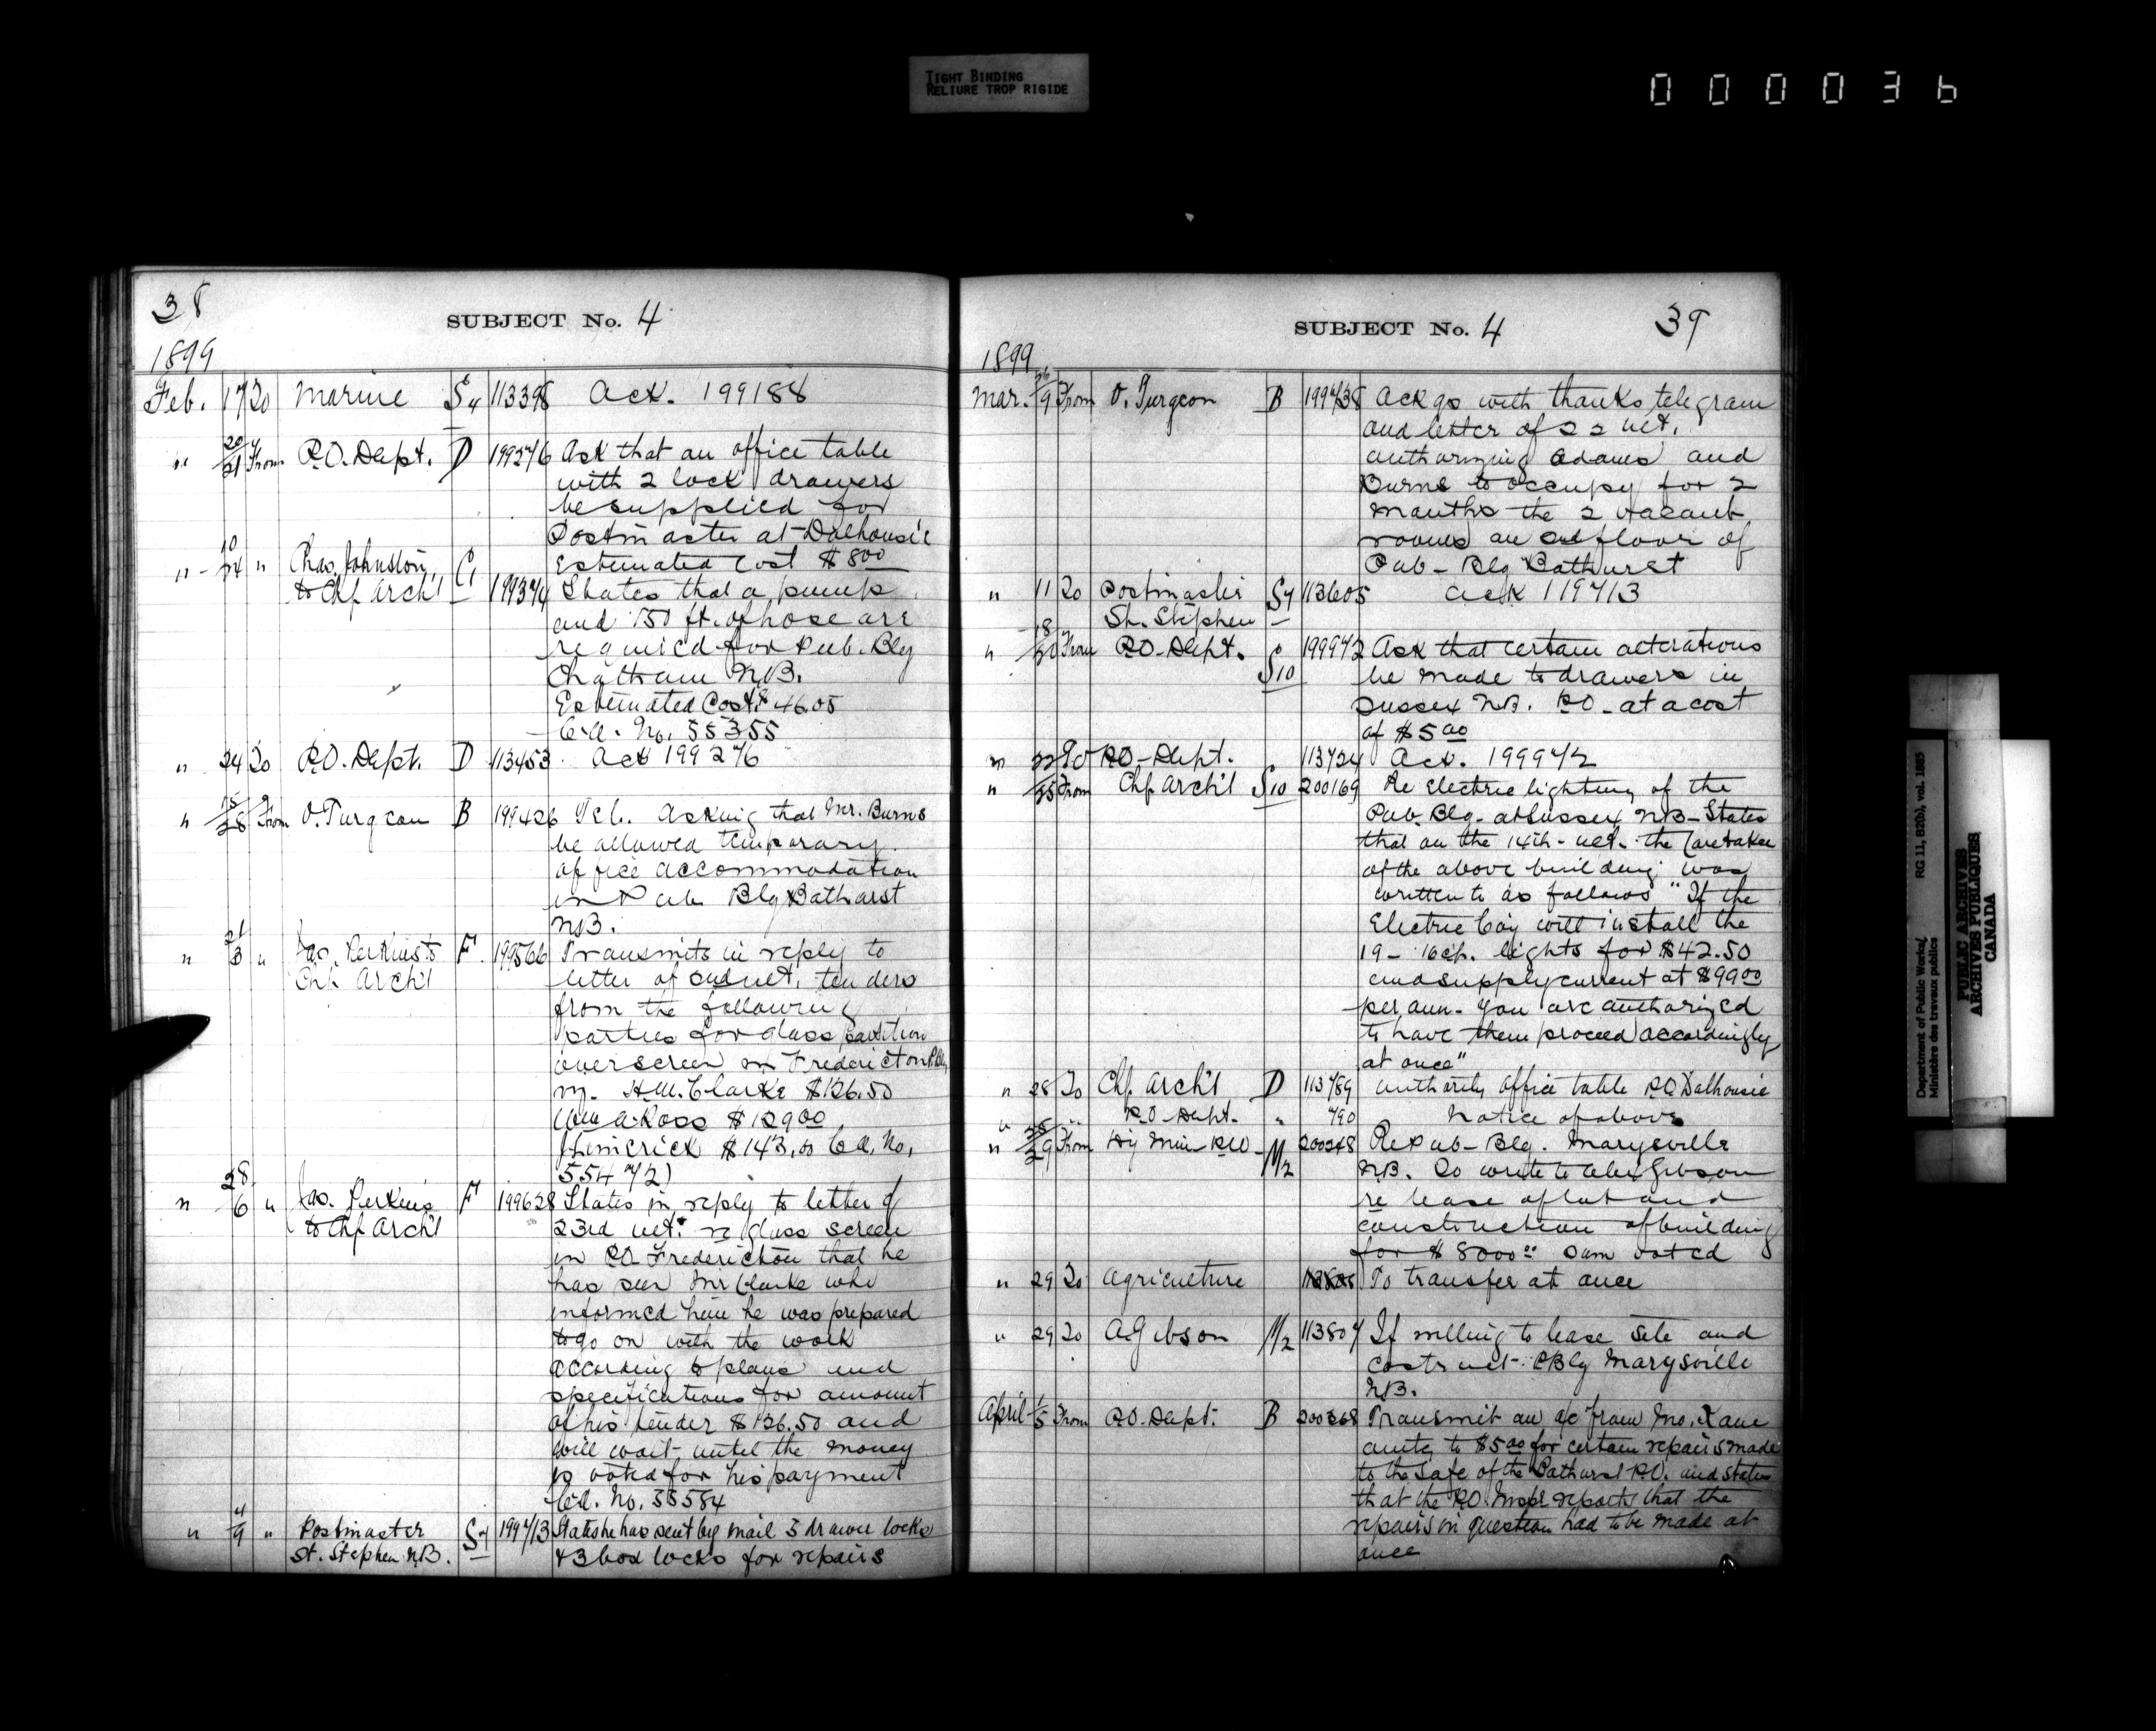 TIGHT BINDING
RELIURE TROP RIGIDE
000036
38
SUBJECT No. 4
1899
Feb. 17 To Marine S4 113398 Ack. 199188
" 20/21 From P.O. Dept. D 199276 Ask that an office table
with 2 lock drawers
be supplied for
Postmaster at Dalhousie
Estimated Cost $8.00
" 10/24 " Chas. Johnston C1
to Chf Arch'l 199374 States that a pump
and 150 ft. of hose are
required for Pub. Blg
Chatham N.B.
Estimated Cost $46.05
C.A. No. 55355
" 24 To P.O. Dept. D 113453 Ack 199276
" 25/28 From O. Turgeon B 199426 Tel. Asking that Mr. Burns
be allowed temporary
office accommodation
in Pub Blg Bathurst
N.B.
" 21/3 " Jas. Perkins to F. 199566 Transmits in reply to
Chf. Arch'l letter of 2nd ult. tenders
from the following
parties for glass partition
over screen in Fredericton P.Blg
viz. H.M. Clarke $126.50
Wm A Ross $129.00
J Limerick $143.00 C.A. No.
55472)
" 28/6 " Jas. Perkins F 199628 States in reply to letter of
to Chf Arch'l 23rd ult. re glass screen
in P.O. Fredericton that he
has seen Mr Clarke who
informed him he was prepared
to go on with the work
according to plans and
specifications for amount
of his tender $126.50 and
will wait until the money
is voted for his payment
C.A. No. 55584
" 4/9 " Postmaster S7 199713 States he has sent by mail 3 drawer locks
St. Stephen N.B. & 3 box locks for repairs
SUBJECT No. 4
39
1899
Mar. 9 From O. Turgeon B 199738 Ackgs with thanks telegram
and letter of 22 ult.
authorizing Adams and
Burns to occupy for 2
months the 2 vacant
rooms on 2nd floor of
Pub- Blg Bathurst
" 11 To Postmaster S7 113605 Ack 119713
St. Stephen
" 18/20 From P.O. Dept. S10 199972 Ask that certain alterations
be made to drawers in
Sussex N.B. P.O. at a cost
of $5.00
" 22 To P.O. Dept. " 113724 Ack. 199972
" /25 From Chf Arch'l S10 200169 Re Electric lighting of the
Pub. Blg. at Sussex N.B. States
that on the 14th ult. the Caretaker
of the above building was
written to as follows "If the
Electric Coy will install the
19 - 16 cp. lights for $42.50
and supply current at $99.00
per ann. you are authorized
to have them proceed accordingly
at once"
" 28 To Chf Arch'l D 113789 Authority Office table P.O. Dalhousie
" " " P.O. Dept. " 790 Notice of above
" 28/29 From Hg Min P.W. M2 200248 Re Pub- Blg. Marysville
N.B. To write to Alex Gibson
re lease of lot and
construction of building
for $8000.00 sum voted
" 29 To Agriculture 113805 To transfer at once
" 29 To A. Gibson M2 113807 If willing to lease site and
construct P.Blg Marysville
N.B.
April 1/5 From P.O. Dept. B 200368 Transmit an a/c from Jno. Kane
amtg to $5.00 for certain repairs made
to the safe of the Bathurst P.O. and states
that the P.O. Inspr reports that the
repairs in question had to be made at
once
Department of Public Works/ RG 11, B2(b), vol. 1885
Ministère des travaux publics
PUBLIC ARCHIVES
ARCHIVES PUBLIQUES
CANADA